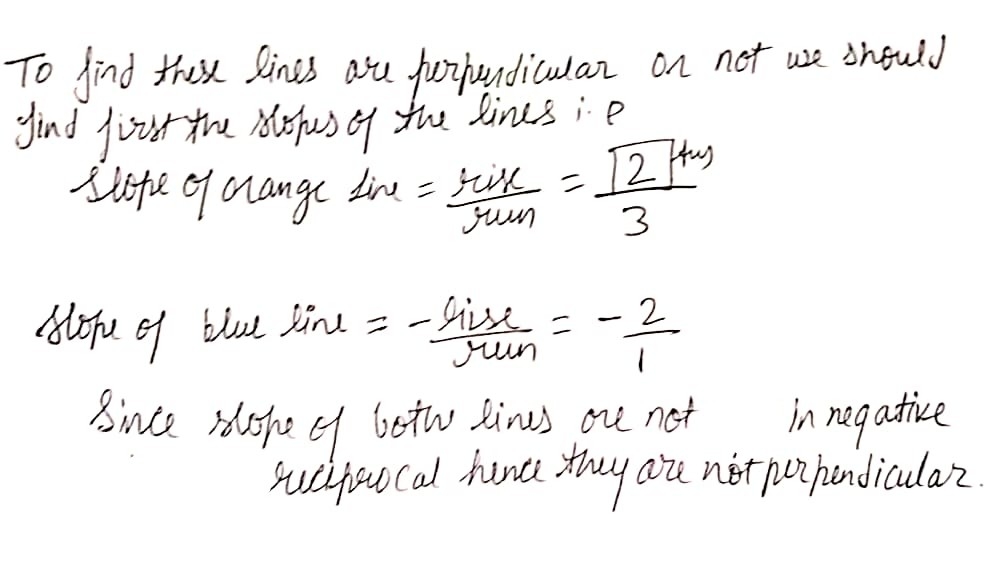 To find these lines are perpendicular or not we should
find first the slopes of the lines i.e
Slope of orange line = rise/run = 2/3 Ans
Slope of blue line = -rise/run = -2/1
Since slope of both lines are not in negative
reciprocal hence they are not perpendicular.